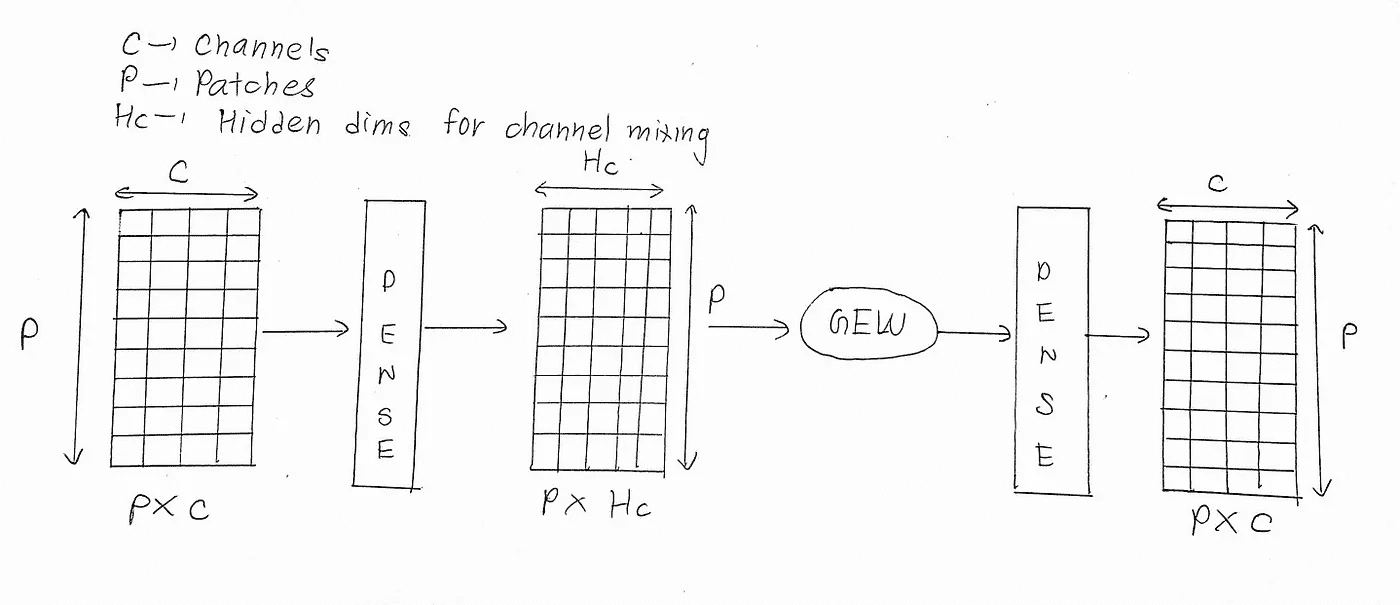 C → Channels
P → Patches
Hc → Hidden dims for channel mixing
C
P
DENSE
Hc
P
GEW
DENSE
C
P
P X C
P X Hc
P X C